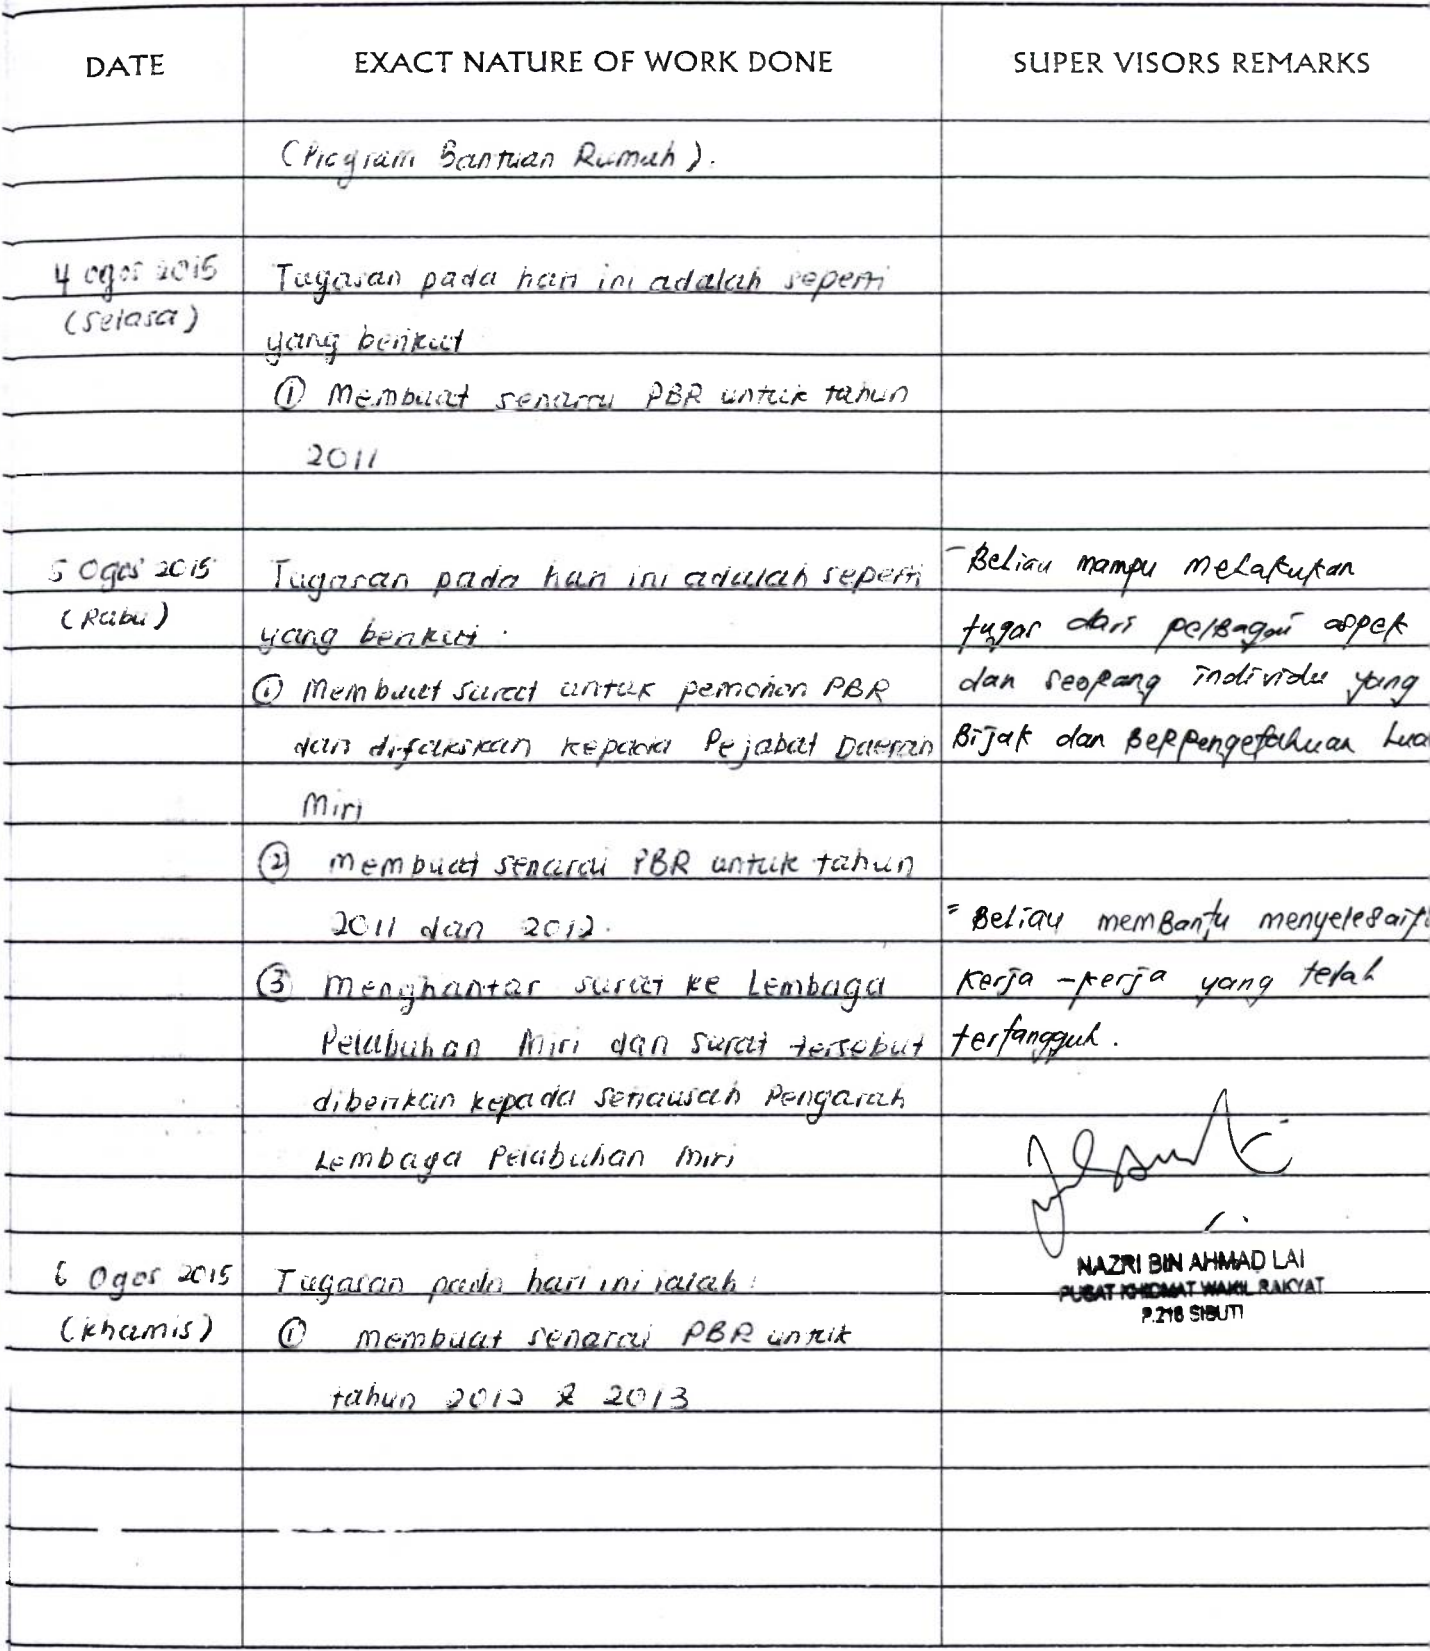 DATE EXACT NATURE OF WORK DONE SUPER VISORS REMARKS
(Program Bantuan Rumah).
4 ogos 2015 Tugasan pada hari ini adalah seperti
(Selasa)
yang berikut
① Membuat senarai PBR untuk tahun
2011
5 Ogos 2015 Tugasan pada hari ini adalah seperti
(Rabu)
yang berikut :
① Membuat surat untuk pemohon PBR
dan difakskan kepada Pejabat Daerah
Miri
② Membuat senarai PBR untuk tahun
2011 dan 2012.
③ Menghantar surat ke Lembaga
Pelabuhan Miri dan surat tersebut
diberikan kepada setiausah Pengarah
Lembaga Pelabuhan Miri
- Beliau mampu melakukan
tugas dari pelbagai aspek
dan seorang individu yang
Bijak dan Berpengetahuan Lua
= Beliau memBantu
kerja-kerja yang telah
tertangguh.
NAZRI BIN AHMAD LAI
PUSAT KHIDMAT WAKIL RAKYAT
P.218 SIBUTI
6 Ogos 2015 Tugasan pada hari ini ialah :
(Khamis) ① membuat senarai PBR untuk
tahun 2012 & 2013